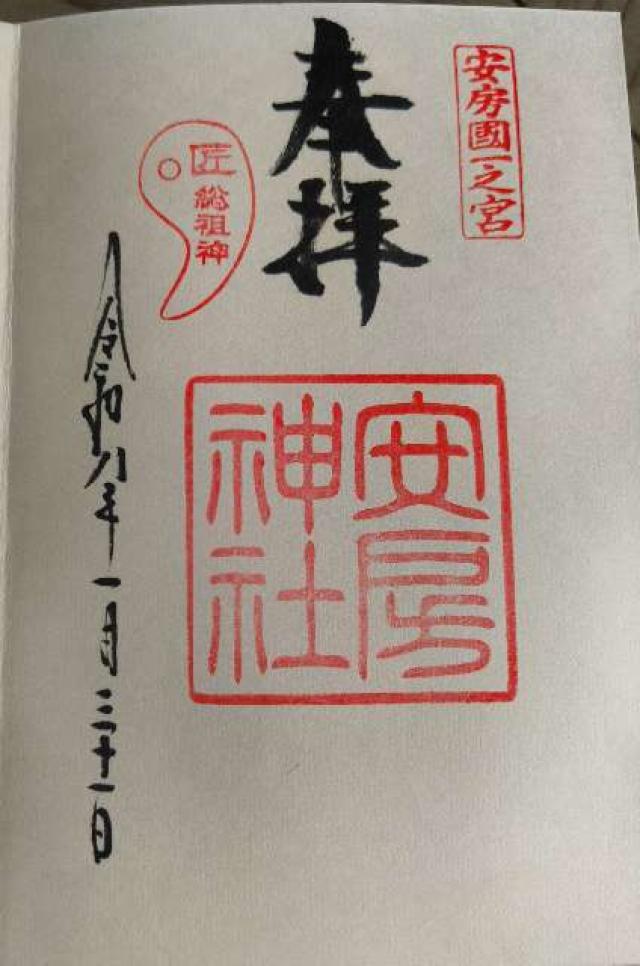 安房國一之宮
奉拝
匠
総祖神
安房
神社
令和八年一月三十一日